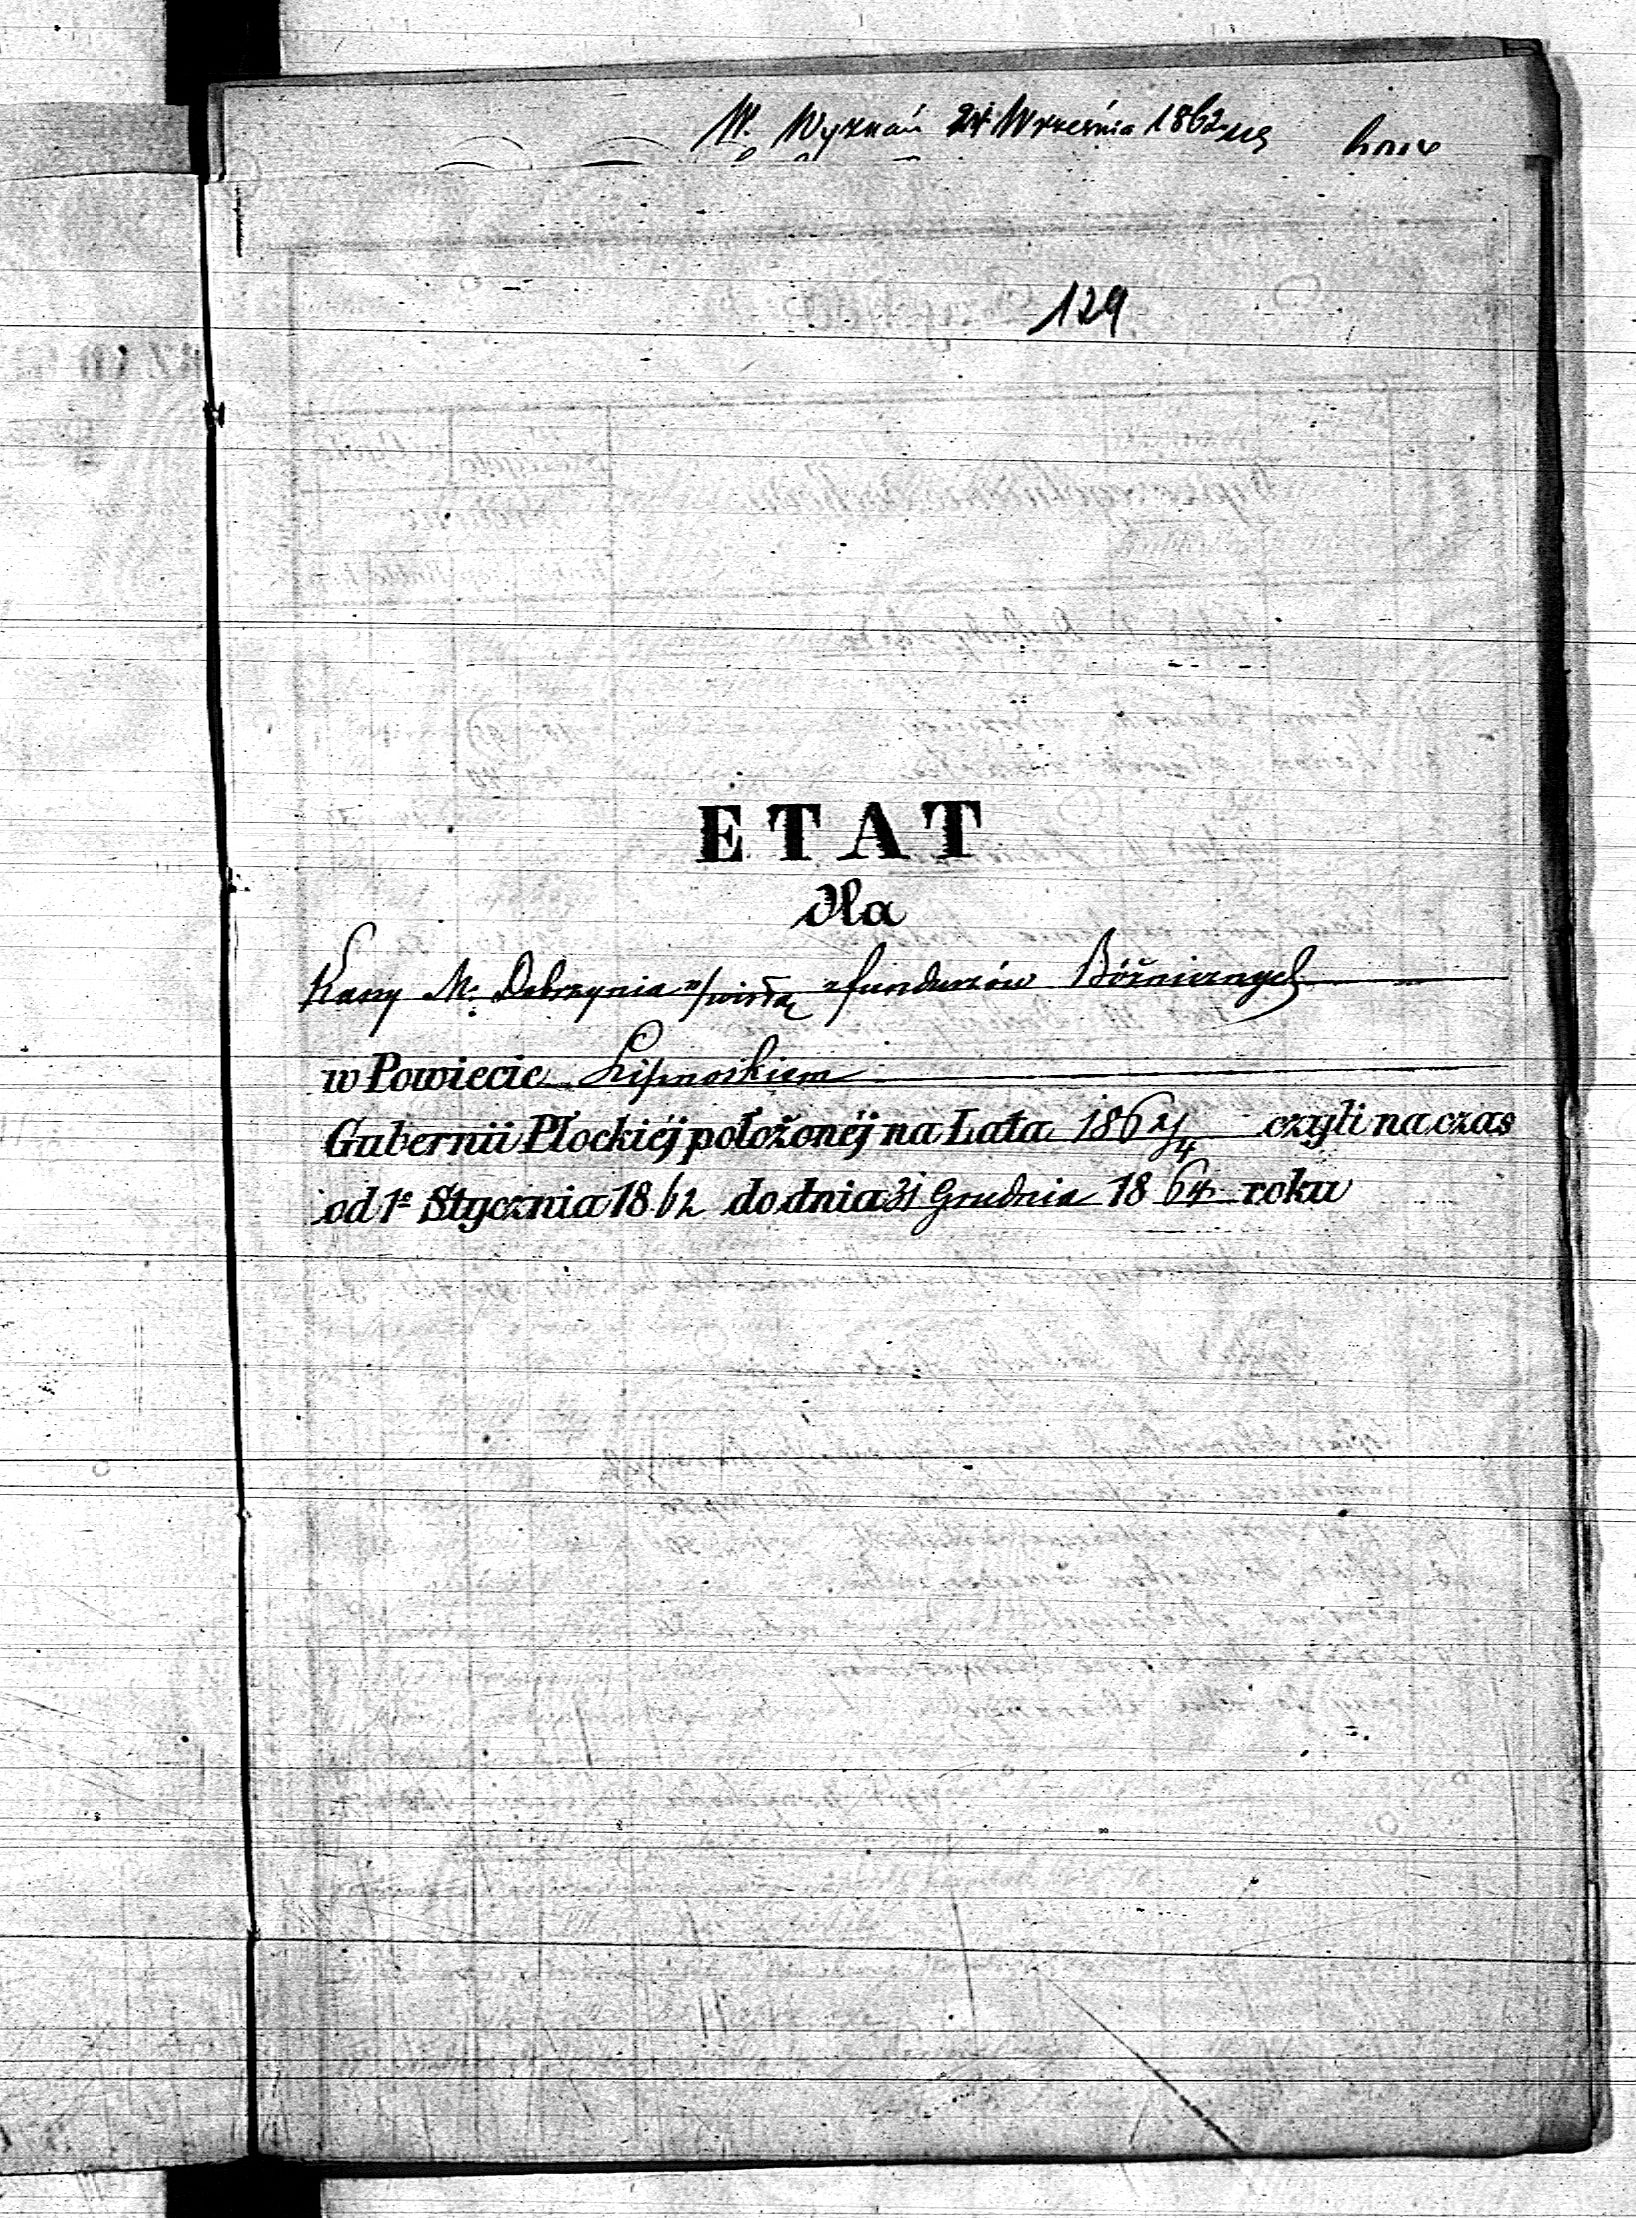 W. Wyznań 24 Września 1862
129
ETAT
dla
Kasy M. Dobrzynia n/wisłą z funduszów Bóżnicznych
w Powiecie Lipnoskiem
Gubernii Płockiéj położonéj na Lata 1862/4 czyli na czas
od 1º Stycznia 1862 do dnia 31 Grudnia 1864 roku